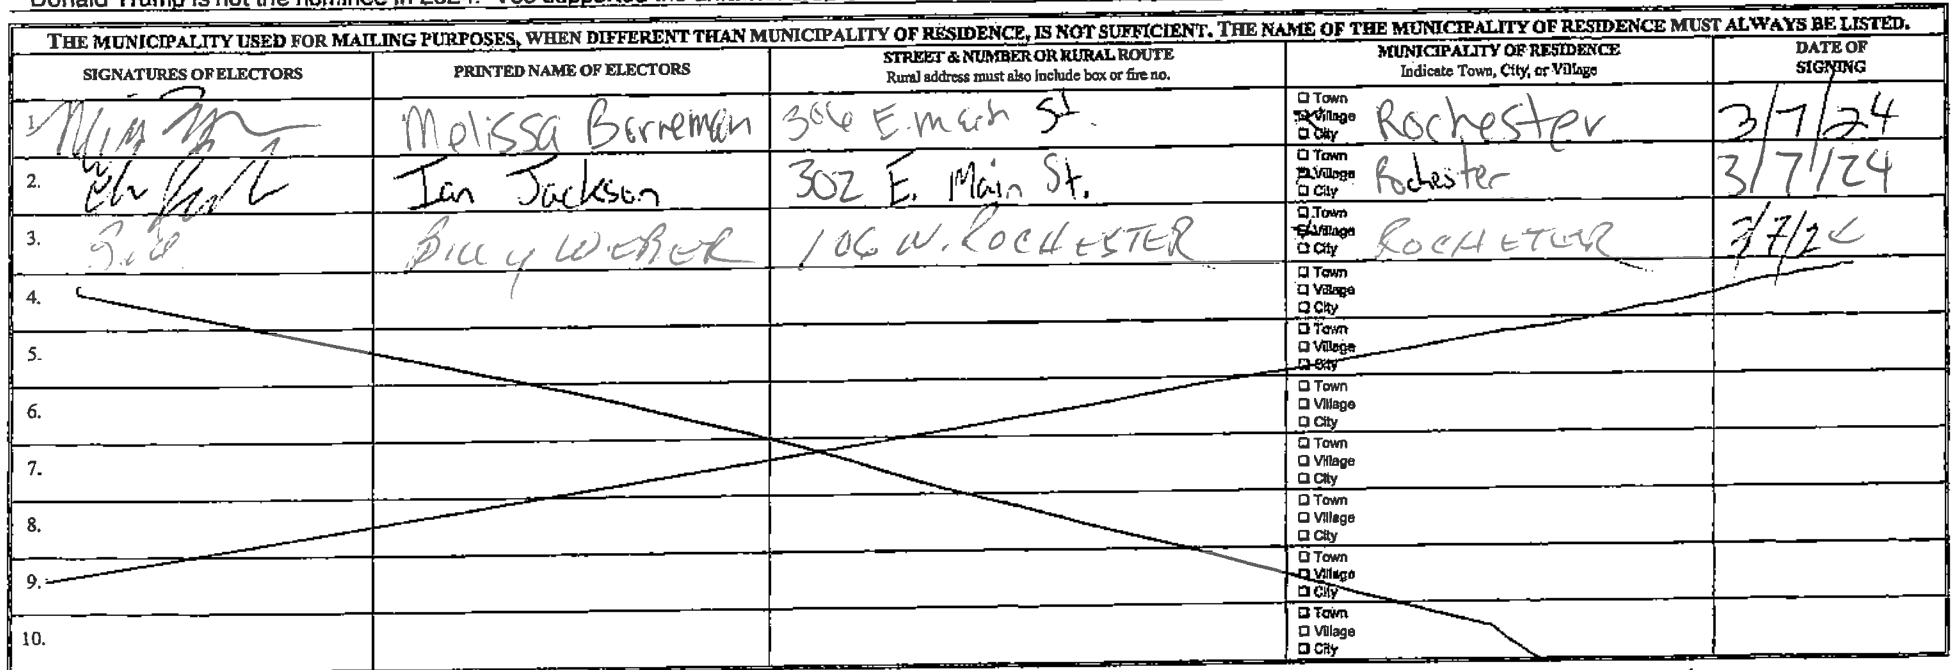 Donald Trump is not the nominee in 2024.
THE MUNICIPALITY USED FOR MAILING PURPOSES, WHEN DIFFERENT THAN MUNICIPALITY OF RESIDENCE, IS NOT SUFFICIENT. THE NAME OF THE MUNICIPALITY OF RESIDENCE MUST ALWAYS BE LISTED.
SIGNATURES OF ELECTORS
PRINTED NAME OF ELECTORS
STREET & NUMBER OR RURAL ROUTE
Rural address must also include box or fire no.
MUNICIPALITY OF RESIDENCE
Indicate Town, City, or Village
DATE OF
SIGNING
1. Melissa Borreman 306 E. Main St.
Town
Village
City
Rochester 3/7/24
2. Ian Jackson 302 E. Main St.
Town
Village
City
Rochester 3/7/24
3. Billy WEBER 106 N. ROCHESTER
Town
Village
City
ROCHETER 3/7/24
4.
Town
Village
City
5.
Town
Village
City
6.
Town
Village
City
7.
Town
Village
City
8.
Town
Village
City
9.
Town
Village
City
10.
Town
Village
City